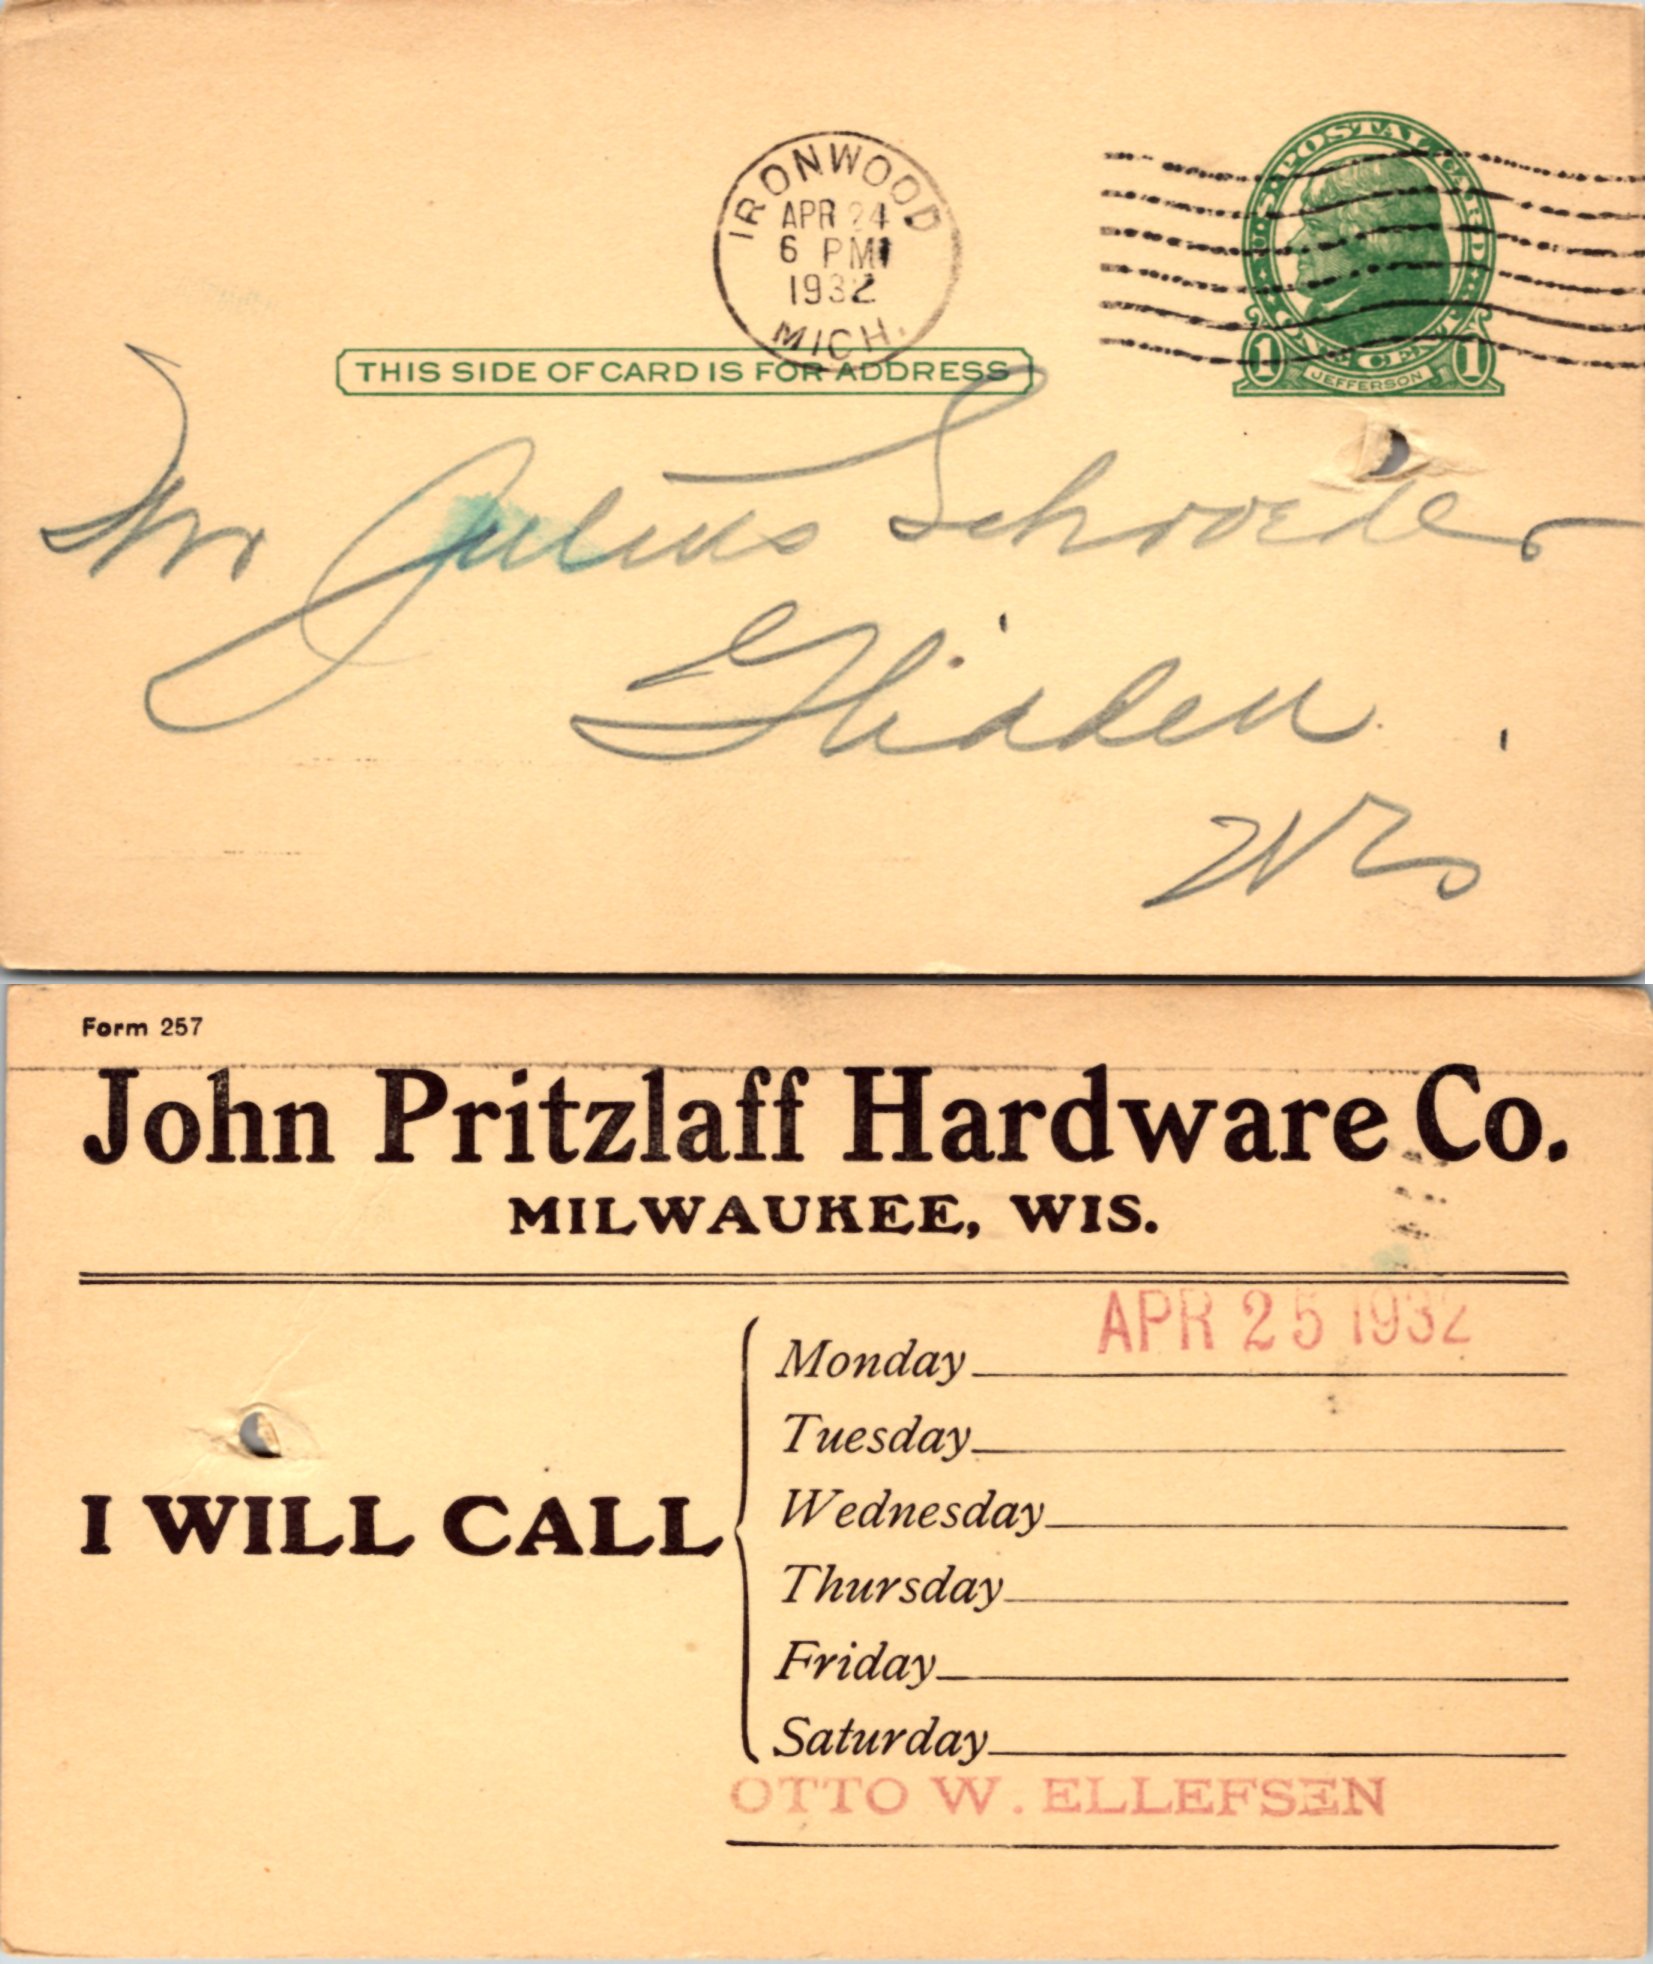 IRONWOOD
APR 24
6 PM
1932
MICH.
U.S. POSTAL CARD
ONE CENT
1 JEFFERSON 1
THIS SIDE OF CARD IS FOR ADDRESS
Mr Julius Schroeder
Glidden
Wis
Form 257
John Pritzlaff Hardware Co.
MILWAUKEE, WIS.
APR 25 1932
Monday
Tuesday
Wednesday
I WILL CALL
Thursday
Friday
Saturday
OTTO W. ELLEFSEN